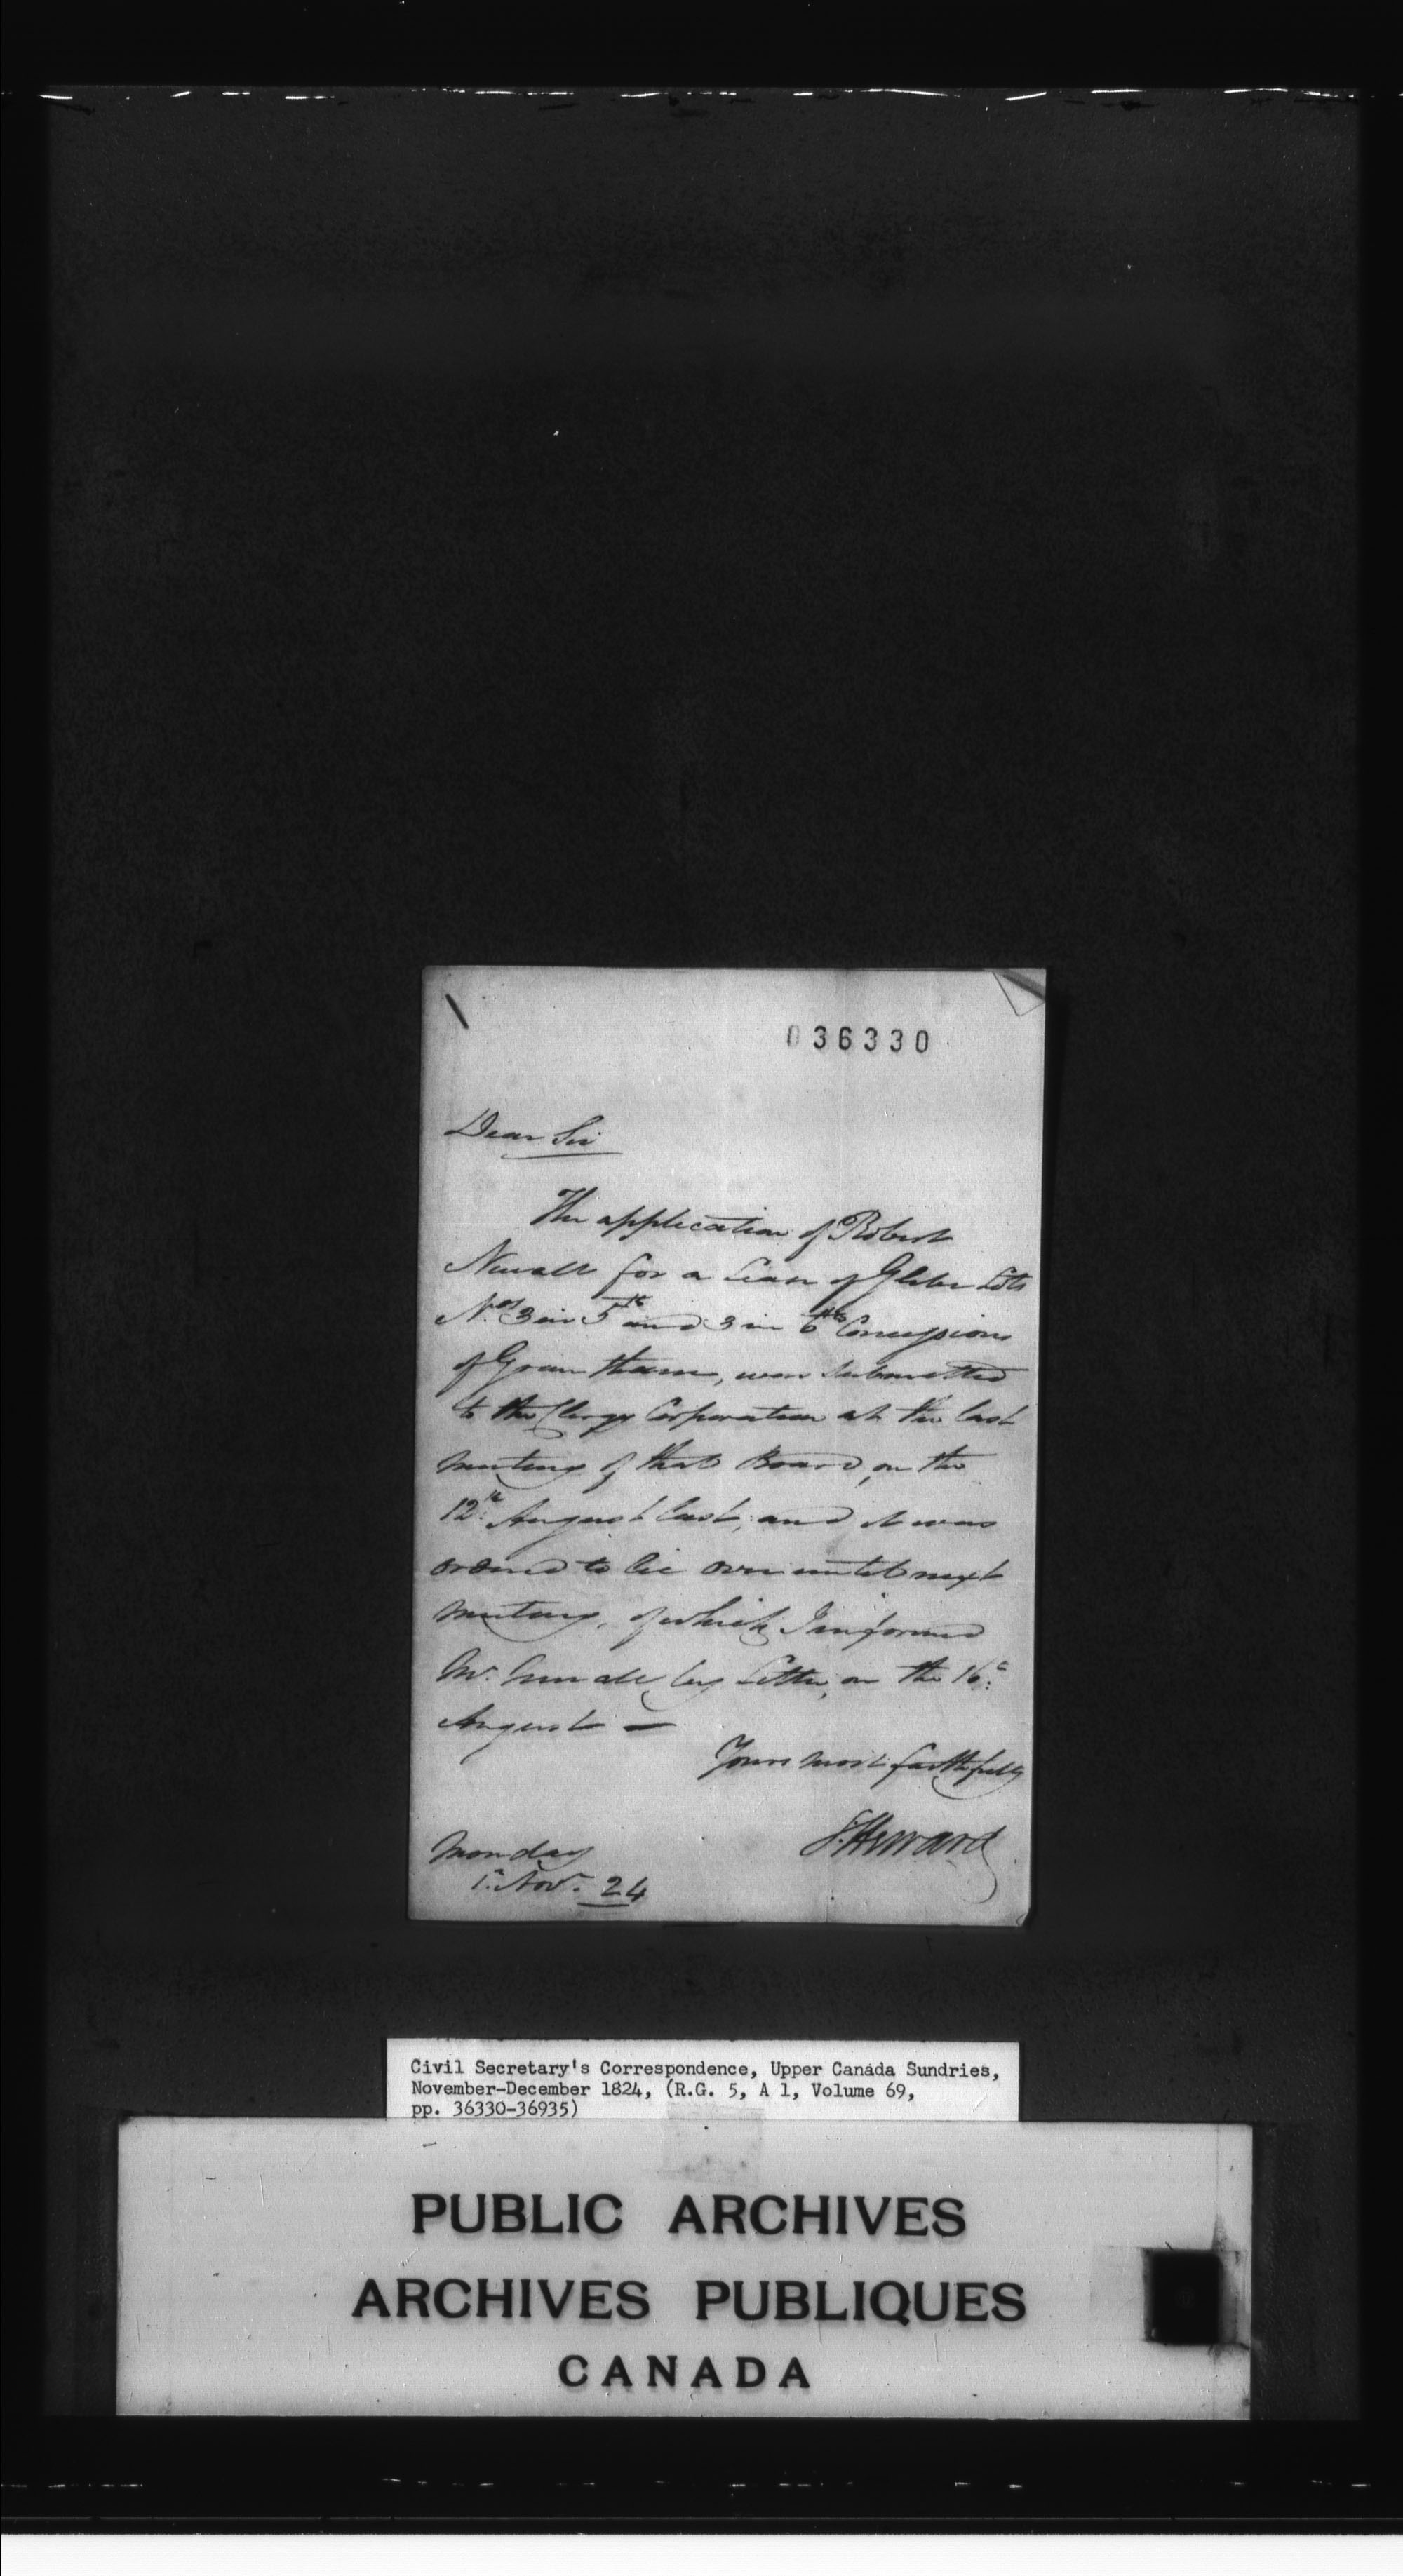 036330
Dear Sir
The application of Robert
Newall for a Lease of Glebe Lots
Nos 3 in 5th and 3 in 6th Concessions
of Grantham, was submitted
to the Clergy Corporation at the last
meeting of that Board, on the
12th August last, and it was
ordered to lie over until next
meeting, of which I informed
Mr. Newall by Letter, on the 16th
August —
Yours most faithfully
S. Heward
Monday
1st Nov. 24
Civil Secretary's Correspondence, Upper Canada Sundries,
November-December 1824, (R.G. 5, A 1, Volume 69,
pp. 36330-36935)
PUBLIC ARCHIVES
ARCHIVES PUBLIQUES
CANADA